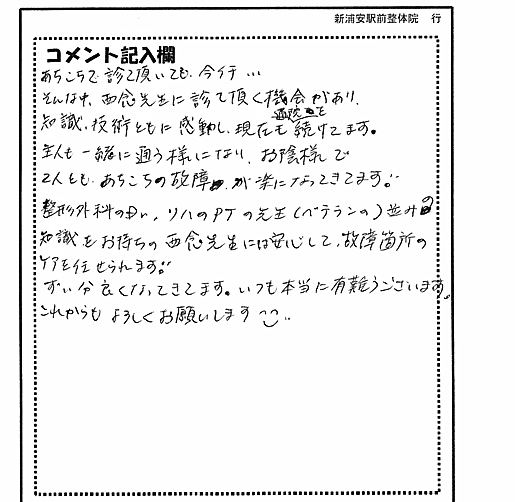 新浦安駅前整体院　行
コメント記入欄
あちこちで診て頂いても、今イチ…
そんな中、西念先生に診て頂く機会があり、
知識、技術ともに感動し、現在も通院を続けてます。
主人も一緒に通う様になり、お陰様で
2人とも、あちこちの故障が楽になってきてます!!
整形外科のDr、リハのPTの先生(ベテランの)並みの
知識をお持ちの西念先生には安心して、故障箇所の
ケアを任せられます!!
ずい分良くなってきてます。いつも本当に有難うございます。
これからもよろしくお願いします